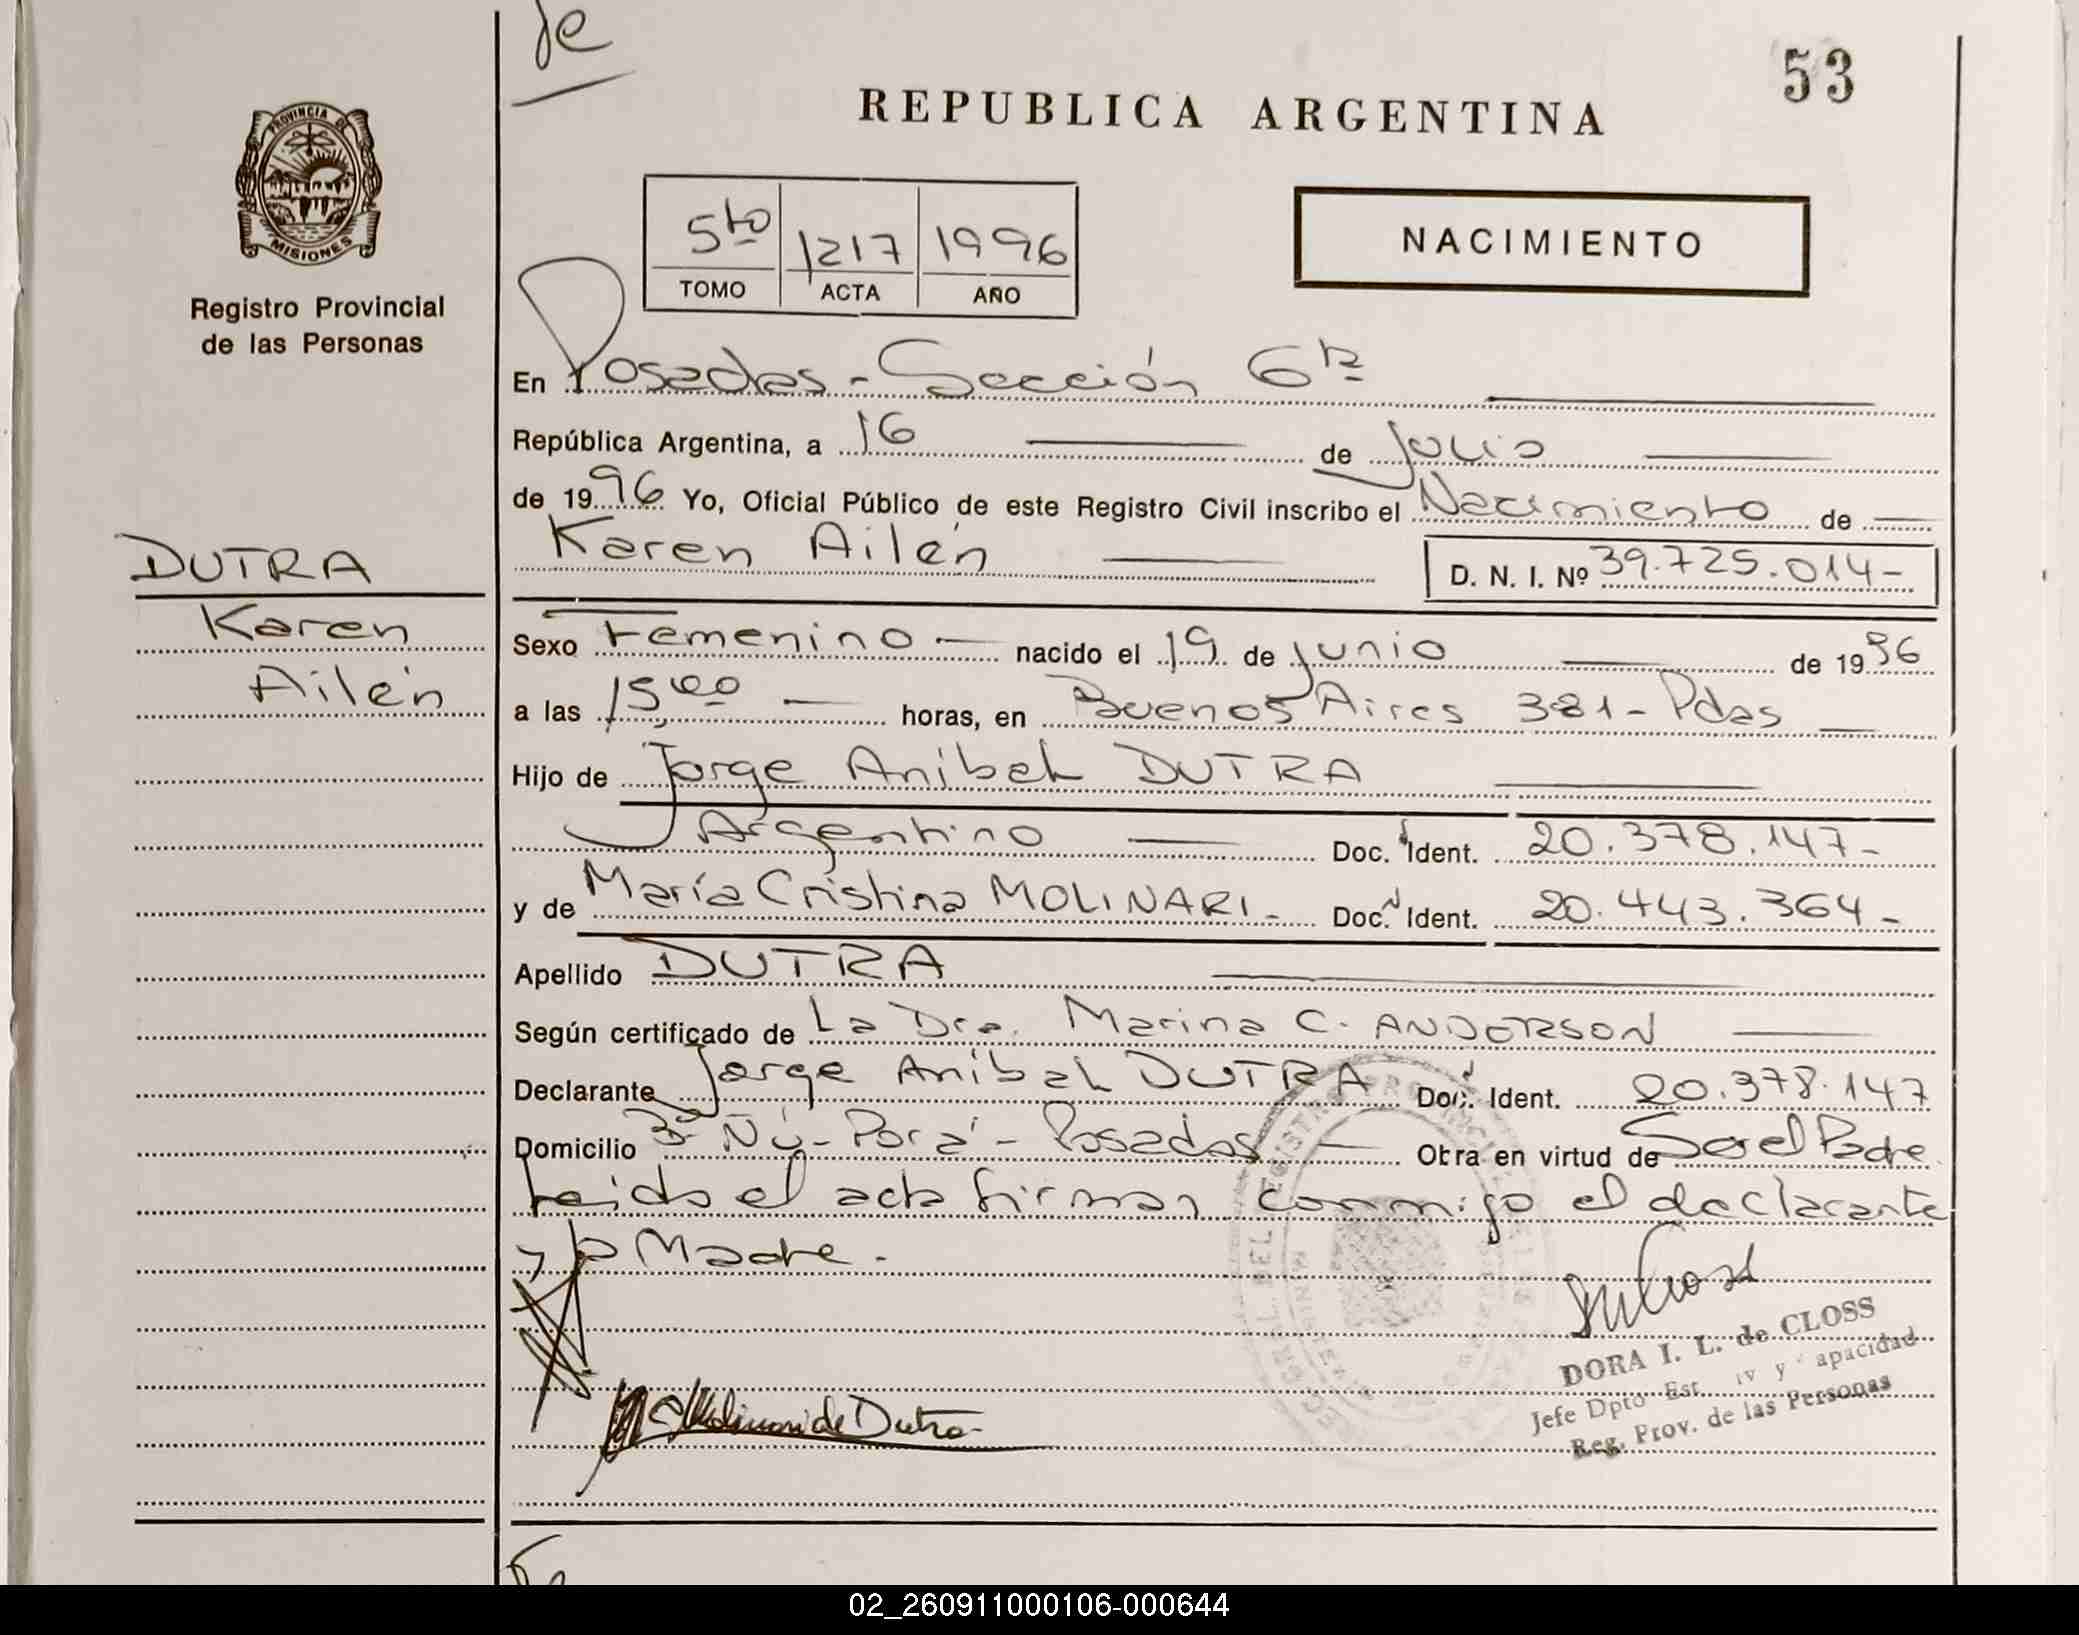 de
53
REPUBLICA ARGENTINA
PROVINCIA DE
MISIONES
Registro Provincial
de las Personas
5to 1217 1996
TOMO ACTA AÑO
NACIMIENTO
En Posadas - Sección 6ta
República Argentina, a 16 de Julio
de 1996 Yo, Oficial Público de este Registro Civil inscribo el Nacimiento de
Karen Ailén
D. N. I. Nº 39.725.014-
DUTRA
Karen
Ailén
Sexo Femenino nacido el 19 de Junio de 1996
a las 15,00 horas, en Buenos Aires 381 - Pdas
Hijo de Jorge Aníbal DUTRA
Argentino Doc. Ident. 20.378.147-
y de María Cristina MOLINARI - Doc. Ident. 20.443.364-
Apellido DUTRA
Según certificado de La Dra. Marina C. ANDERSON
Declarante Jorge Aníbal DUTRA Doc. Ident. 20.378.147
Domicilio Bº Ñú - Porá - Posadas Obra en virtud de Ser el Padre
Leida el acta firman conmigo el declarante
y la Madre.
Molinari de Dutra
DORA I. L. de CLOSS
Jefe Dpto Est. iv y apacidad
Reg. Prov. de las Personas
02_260911000106-000644